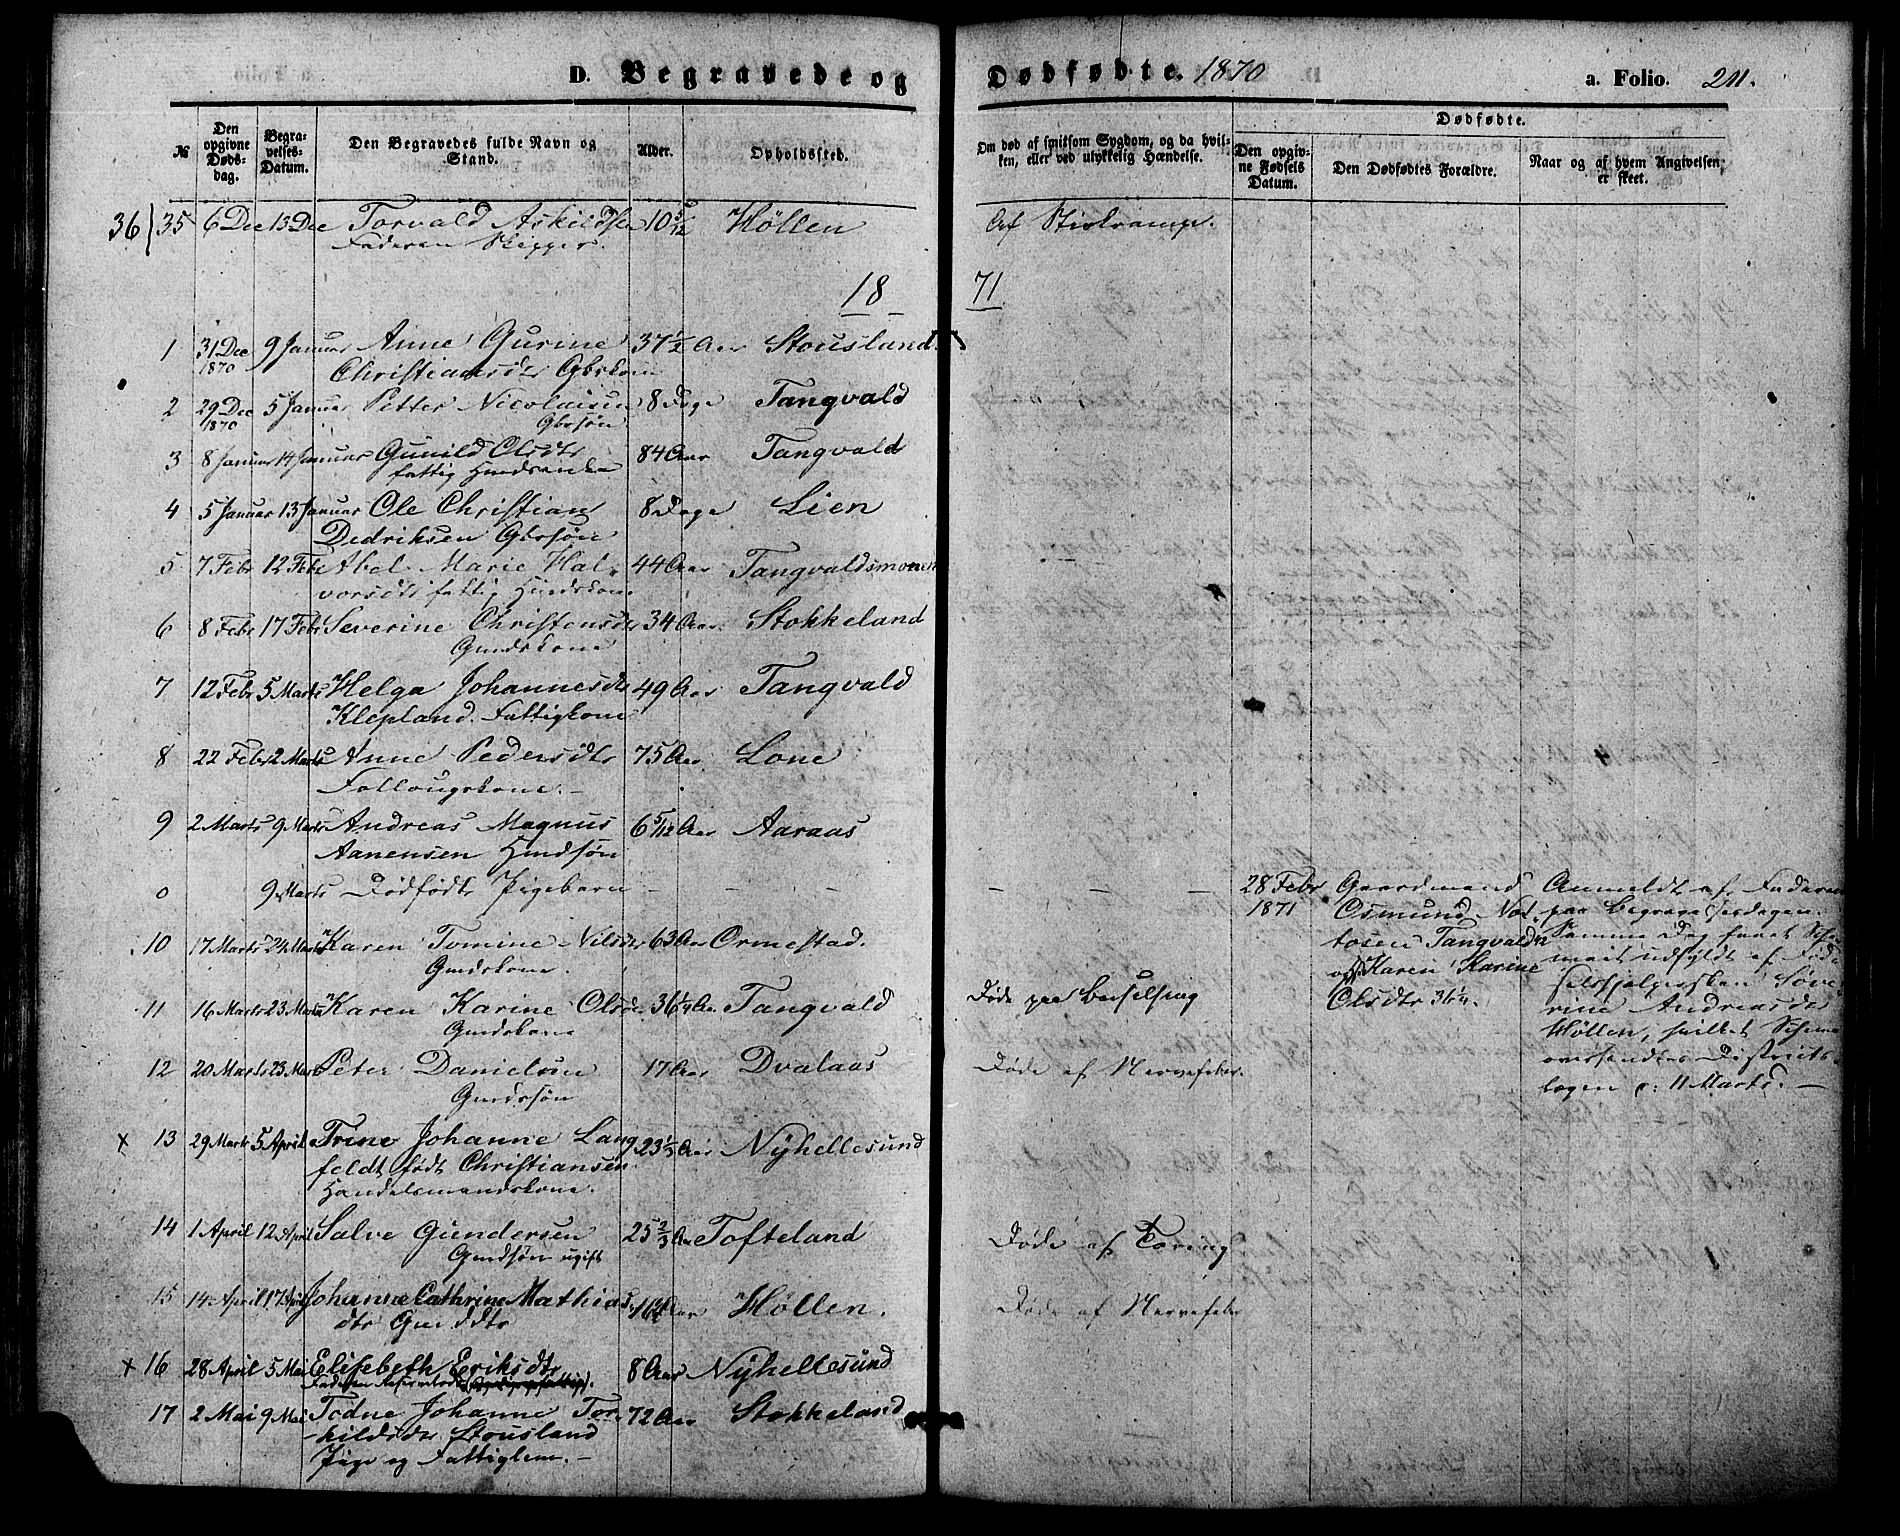 D. Begravede og Dødfødte. 1870 a. Folio. 211.
№ Den opgivne Dødsdag. Begravelses-Datum. Den Begravedes fulde Navn og Stand. Alder. Opholdssted. Om død af smitsom Sygdom, og da hvilken, eller ved ulykkelig Hændelse. Dødfødte. Den opgivne Fødsels Datum. Den Dødfødtes Forældre. Naar og af hvem Angivelsen er skeet.
36) 35 6 Dec 13 Dec Torvald Askilds 10 5/12 Høllen Af Stivkrampe.
Faderen Skipper.
18 71
1 31 Dec 9 Januar Anne Gurine 37 1/2 Aar Stousland.
1870 Christiansdtr Gbrskone
2 29 Dec 5 Januar Petter Nicolaisen 8 Dage Tangvald
1870 Gbrsøn
3 8 Januar 14 Januar Gunild Olsdtr 84 Aar Tangvald
fattig Hmdsenke
4 5 Januar 13 Januar Ole Christian 8 Dage Lien
Dedriksen Gbrsøn
5 7 Febr 12 Febr Abel Marie Hal- 44 Aar Tangvaldsmonen
vorsdtr fattig Huudskone
6 8 Febr 17 Febr Severine Christensdtr 34 Aar Stokkeland
Gmdskone
7 12 Febr 5 Marts Helga Johannesdtr 49 Aar Tangvald
Klepland. Fattigkone
8 22 Febr 2 Marts Anne Pedersdtr 75 Aar. Lone
Follougskone. -
9 2 Marts 9 Marts Andreas Magnus 6 5/12 Aar Aaraas
Aanensen Hmdsøn
0 9 Marts Dødfødt Pigebarn - - - - - -
28 Febr
1871
Gaardmand
Osmund Not-
tosen Tangvald
Karen Karine
Olsdtr 36 1/4.
Anmeldt af Faderen
paa Begravelsesdagen.
Samme Dag faaet Sche-
mait udfyldt af Fød-
selshjælpersken Seve-
rine Andreasdtr
Høllen, hvilket Schema
oversendtes Districts-
lægen d: 11 Marts. -
10 17 Marts 24 Marts Karen Tomine Nilsdtr 63 Aar Ormestad.
Gmdskone.
11 16 Marts 23 Marts Karen Karine Olsdtr 36 1/4 Aar Tangvald Døde paa Barselseng
Gmdskone
12 20 Marts 23 Marts Peter Danielsen 17 Aar Dvalaas Døde af Nervefeber.
Gmdssøn
x 13 29 Marts 5 April Trine Johanne Lang 23 1/3 Aar Nyhellesund
feldt, født Christiansen
Handelsmandskone.
14 1 April 12 April Salve Gundersen 25 2/3 Aar Tofteland Døde af Tæring
Gmdsøn ugift
15 14 April 17 April Johanne Cathrine Mathias- Aar Høllen. Døde af Nervefeber
dtr Gmddtr
x 16 28 April 5 Mai Elisebeth Eriksdtr 8 Aar Nyhellesund
Faderen
17 2 Mai 9 Mai Todne Johanne Tor- 72 Aar Stokkeland
kildsdtr Stousland
Pige og Fattiglem. -